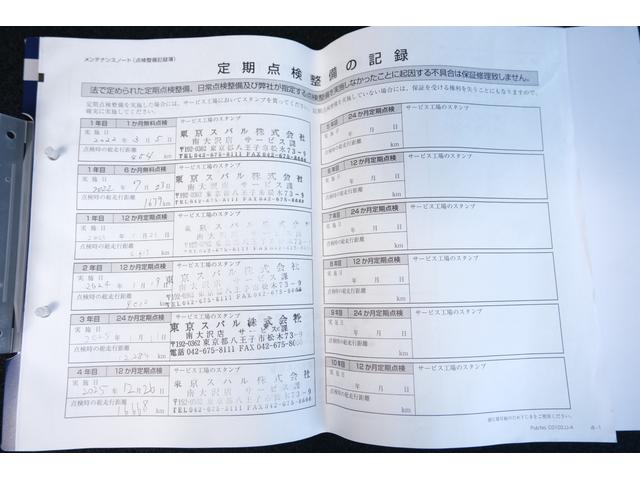 メンテナンスノート(点検整備記録簿)
定期点検整備の記録
法で定められた定期点検整備、日常点検整備及び弊社が指定する点検整備を実施しなかったことに起因する不具合は保証修理致しません。
定期点検整備を実施した場合には、サービス工場においてスタンプを貰ってください。
記録整備を実施していない場合には、保証を受ける権利を失うこともなりますので、
確実に実施してください。
1年目 1か月無料点検 サービス工場のスタンプ
実施日
2022年3月5日
点検時の総走行距離
454 km
東京スバル株式会社
南大沢店 サービス課
〒192-0362 東京都八王子市松木73-9
TEL042-675-8111 FAX042-675-8666
1年目 6か月無料点検 サービス工場のスタンプ
実施日
2022年7月23日
点検時の総走行距離
1679 km
東京スバル株式会社
南大沢店 サービス課
〒192-0362 東京都八王子市松木73-9
TEL042-675-8111 FAX042-675-8666
1年目 12か月定期点検 サービス工場のスタンプ
実施日
点検時の総走行距離
km
東京スバル株式会社
南大沢店 サービス課
〒192-0362 東京都八王子市松木73-9
2年目 12か月定期点検 サービス工場のスタンプ
実施日
2024年1月19日
点検時の総走行距離
km
東京スバル株式会社
南大沢店 サービス課
〒192-0362 東京都八王子市松木73-9
3年目 24か月定期点検 サービス工場のスタンプ
実施日
点検時の総走行距離
12284 km
東京スバル株式会社
南大沢店 サービス課
〒192-0362 東京都八王子市松木73-9
電話 042-675-8111 FAX 042-675-8666
4年目 12か月定期点検 サービス工場のスタンプ
実施日
2025年12月26日
点検時の総走行距離
16668 km
東京スバル株式会社
南大沢店 サービス課
〒192-0362 東京都八王子市松木73-9
TEL042-675-8111 FAX042-675-8666
5年目 24か月定期点検 サービス工場のスタンプ
実施日
年 月 日
点検時の総走行距離
km
6年目 12か月定期点検 サービス工場のスタンプ
実施日
年 月 日
点検時の総走行距離
km
7年目 24か月定期点検 サービス工場のスタンプ
実施日
年 月 日
点検時の総走行距離
km
8年目 12か月定期点検 サービス工場のスタンプ
実施日
年 月 日
点検時の総走行距離
km
9年目 24か月定期点検 サービス工場のスタンプ
実施日
年 月 日
点検時の総走行距離
km
10年目 12か月定期点検 サービス工場のスタンプ
実施日
年 月 日
点検時の総走行距離
km
8-1